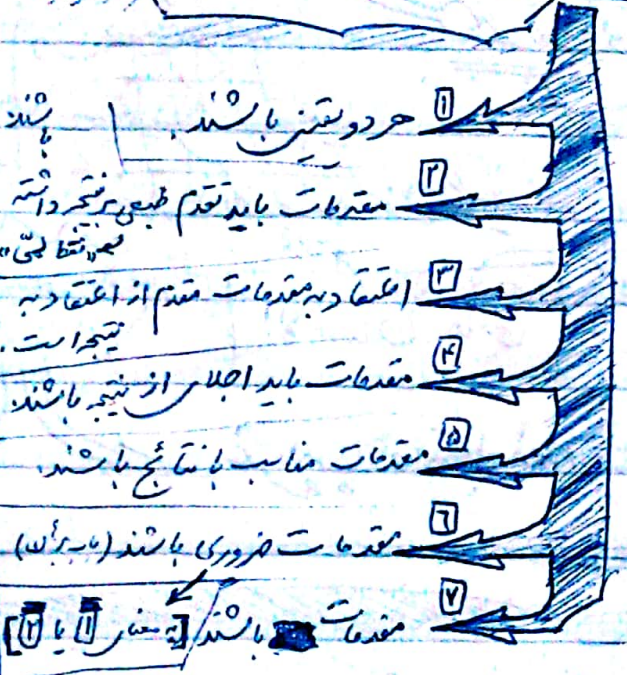 ۱ هر دو یقینی باشند.
۲ مقدمات باید تقدم طبعی بر نتیجه داشته باشند
«فقط لمّی»
۳ اعتقاد به مقدمات مقدم از اعتقاد به
نتیجه است.
۴ مقدمات باید اجلای از نتیجه باشند.
۵ مقدمات مناسب با نتائج باشند.
۶ مقدمات ضروری باشند
۷ مقدمات باشند [به معنای ۱ یا ۲]